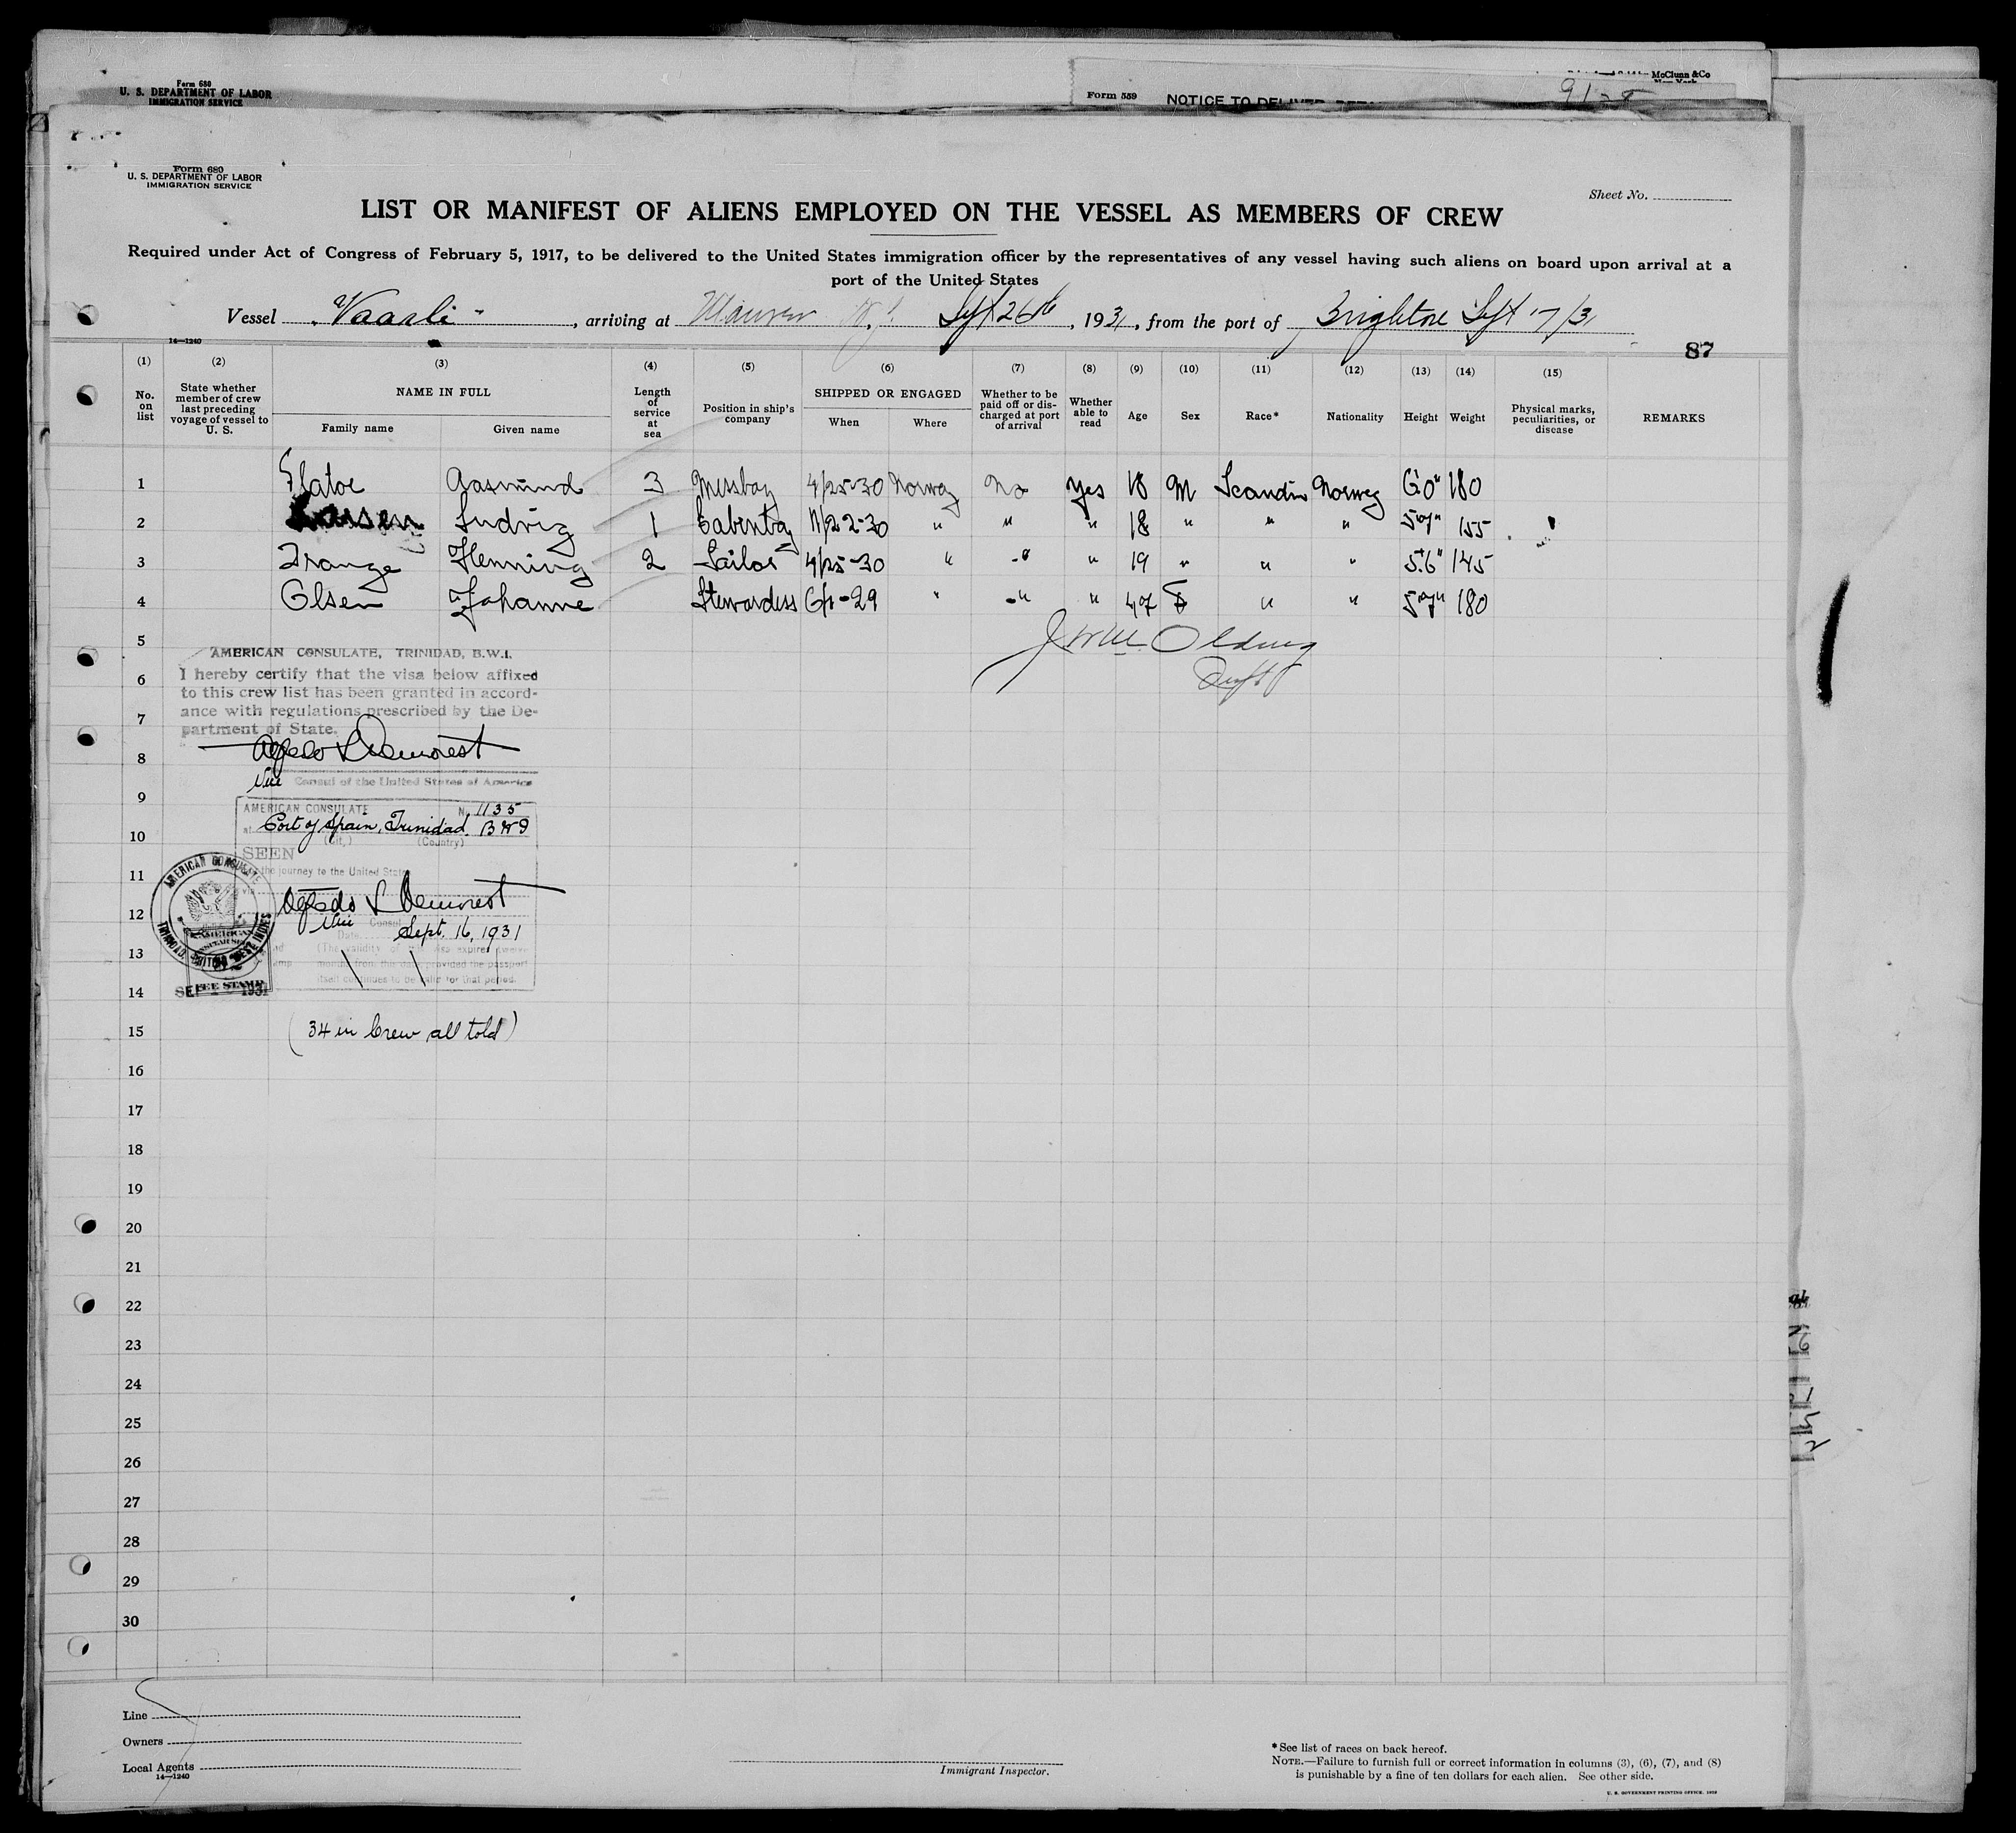 Form 680
U. S. DEPARTMENT OF LABOR
IMMIGRATION SERVICE
McClunn &Co
New York
Form 559 NOTICE TO DELIVER
Form 680
U. S. DEPARTMENT OF LABOR
IMMIGRATION SERVICE
Sheet No.
LIST OR MANIFEST OF ALIENS EMPLOYED ON THE VESSEL AS MEMBERS OF CREW
Required under Act of Congress of February 5, 1917, to be delivered to the United States immigration officer by the representatives of any vessel having such aliens on board upon arrival at a
port of the United States
Vessel "Vaarli", arriving at Maurer N.J. Sept 26th, 1931, from the port of Brighton Sept 17/31
14—1240
87
(1) (2) (3) (4) (5) (6) (7) (8) (9) (10) (11) (12) (13) (14) (15)
No. on list
State whether member of crew last preceding voyage of vessel to U. S.
NAME IN FULL
Family name
Given name
Length of service at sea
Position in ship's company
SHIPPED OR ENGAGED
When
Where
Whether to be paid off or discharged at port of arrival
Whether able to read
Age
Sex
Race*
Nationality
Height
Weight
Physical marks, peculiarities, or disease
REMARKS
1 Flatoe Aasmund 3 Messboy 4/25-30 Norway No Yes 18 M Scandin Norweg 6'0" 180
2 Larsen Ludvig 1 Cabinboy 11/22-30 " " " 18 " " " 5'7" 155
3 Frange Henning 2 Sailor 4/25-30 " -" " 19 " " " 5'6" 145
4 Olsen Johanne Stewardess 6/1-29 " -" " 47 F " " 5'7" 180
5
6
7
8
9
10
11
12
13
14
15
16
17
18
19
20
21
22
23
24
25
26
27
28
29
30
AMERICAN CONSULATE, TRINIDAD, B.W.I.
I hereby certify that the visa below affixed
to this crew list has been granted in accord-
ance with regulations prescribed by the De-
partment of State.
Alfredo L Demorest
Vice Consul of the United States of America
AMERICAN CONSULATE No. 1135
at Port of Spain, Trinidad. B W I
(City) (Country)
SEEN
the journey to the United States
Alfredo L Demorest
Vice Consul
Date Sept. 16, 1931
(The validity of this visa expires twelve
months from this date provided the passport
itself continues to be valid for that period.
AMERICAN CONSULATE
TRINIDAD, BRITISH WEST INDIES
AMERICAN
FEE STAMP
SEP 1931
(34 in Crew all told)
Line
Owners
Local Agents
14—1240
Immigrant Inspector.
*See list of races on back hereof.
NOTE.—Failure to furnish full or correct information in columns (3), (6), (7), and (8)
is punishable by a fine of ten dollars for each alien. See other side.
U. S. GOVERNMENT PRINTING OFFICE